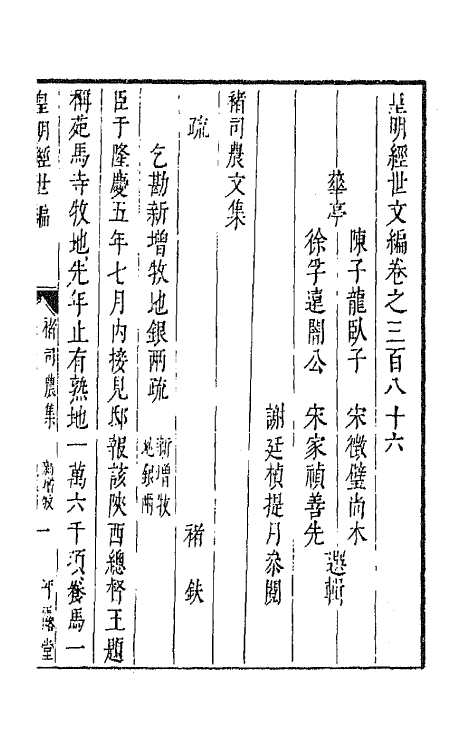 皇明經世文編卷之三百八十六
華亭
陳子龍臥子 宋徵璧尚木
徐孚遠闇公 宋家禎善先
選輯
謝廷楨提月叅閱
褚司農文集
疏 褚鈇
乞勘新增牧地銀兩疏 新增牧地銀兩
臣于隆慶五年七月內接見邸報該陝西總督王題
稱苑馬寺牧地先年止有熟地一萬六千頃養馬一
皇明經世編 褚司農集 新增牧 一 平露堂